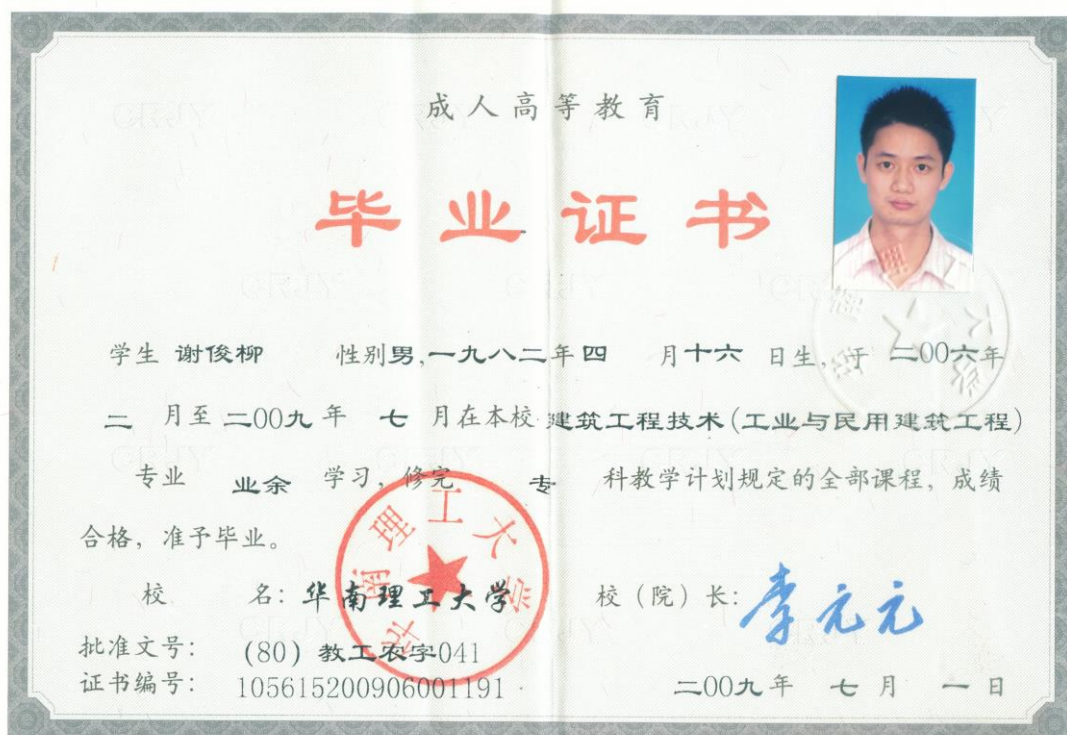 成人高等教育
毕业证书
学生 谢俊柳 性别男,一九八二年四 月十六 日生,于 二00六年
二 月至 二00九年 七 月在本校 建筑工程技术(工业与民用建筑工程)
专业 业余 学习,修完 专 科教学计划规定的全部课程,成绩
合格,准予毕业。
校 名:华南理工大学
校(院)长:李元元
批准文号: (80)教工农字041
证书编号: 105615200906001191
二00九年 七 月 一 日
华南理工大学